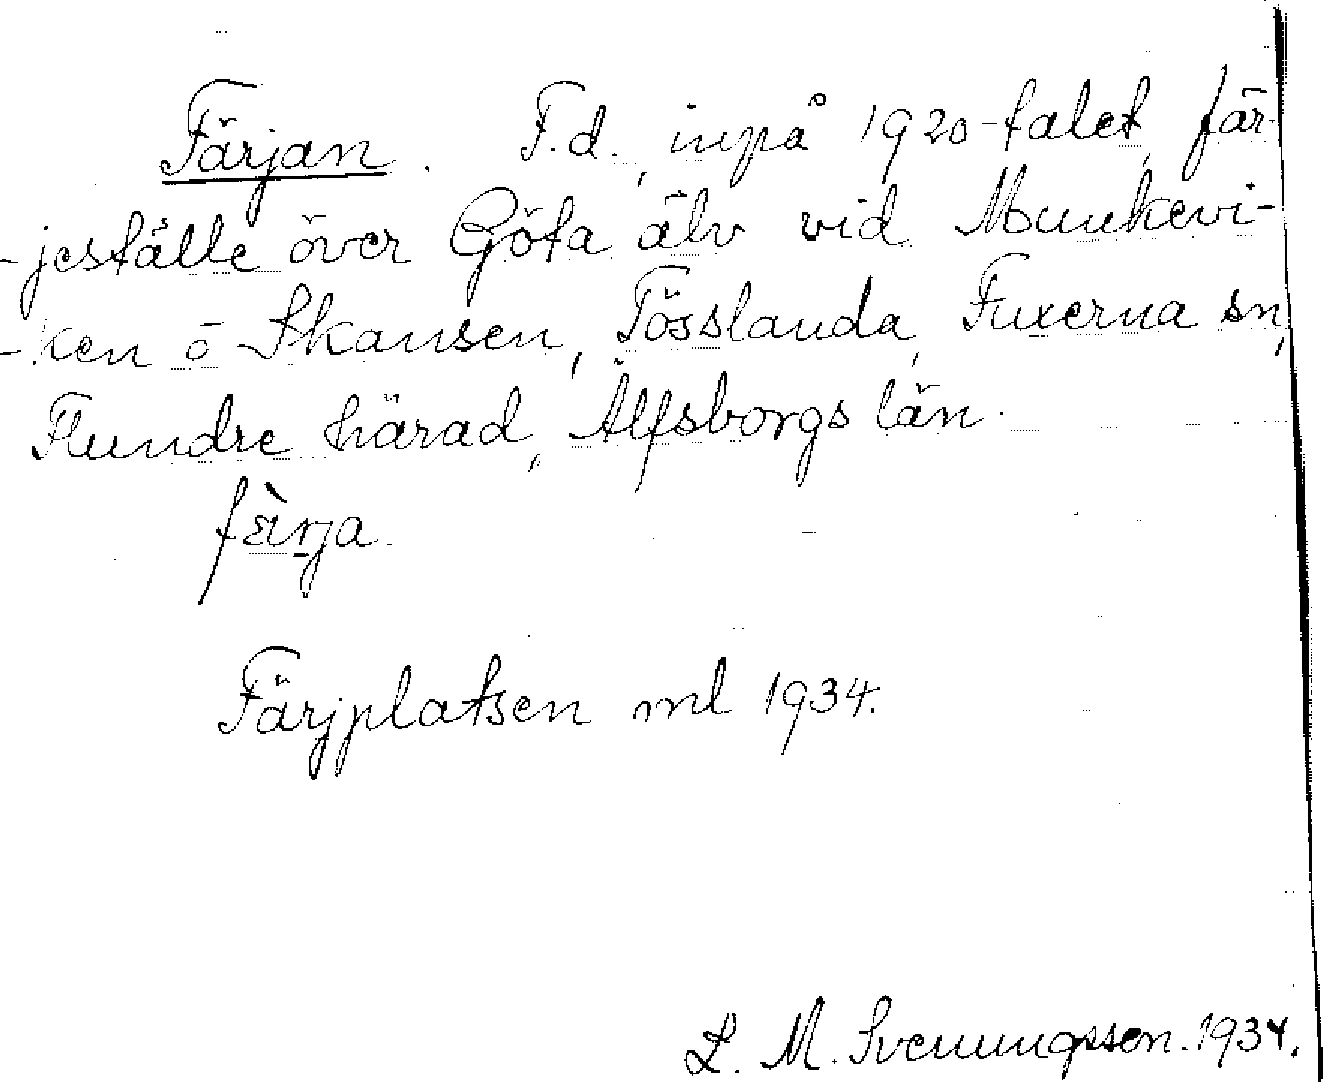 Färjan. F.d., inpå 1920-talet, fär-
-jeställe över Göta älv vid Munkevi-
-ken ō Skansen, Tösslanda, Fuxerna sn,
Flundre härad, Älfsborgs län.
fä̀rja.
Färjplatsen ml 1934.
L. M. Svenungsson. 1934.